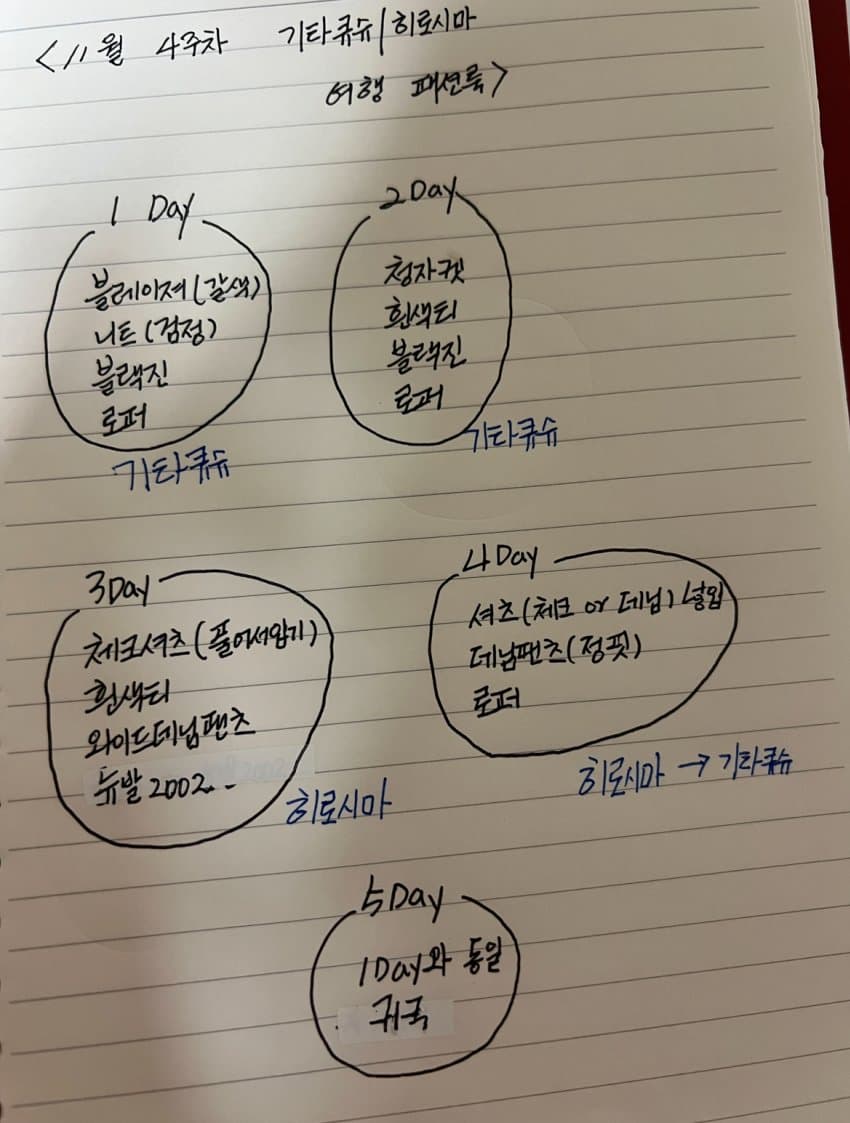 <11월 4주차 기타큐슈/히로시마
여행 패션룩>
1 Day
블레이져(갈색)
니트(검정)
블랙진
로퍼
기타큐슈
2Day
청자켓
흰색티
블랙진
로퍼
기타큐슈
3Day
체크셔츠(풀어서입기)
흰색티
와이드데님팬츠
뉴발 2002..
히로시마
4Day
셔츠(체크 or 데님) 넣입
데님팬츠(정핏)
로퍼
히로시마 → 기타큐슈
5Day
1Day와 동일
귀국